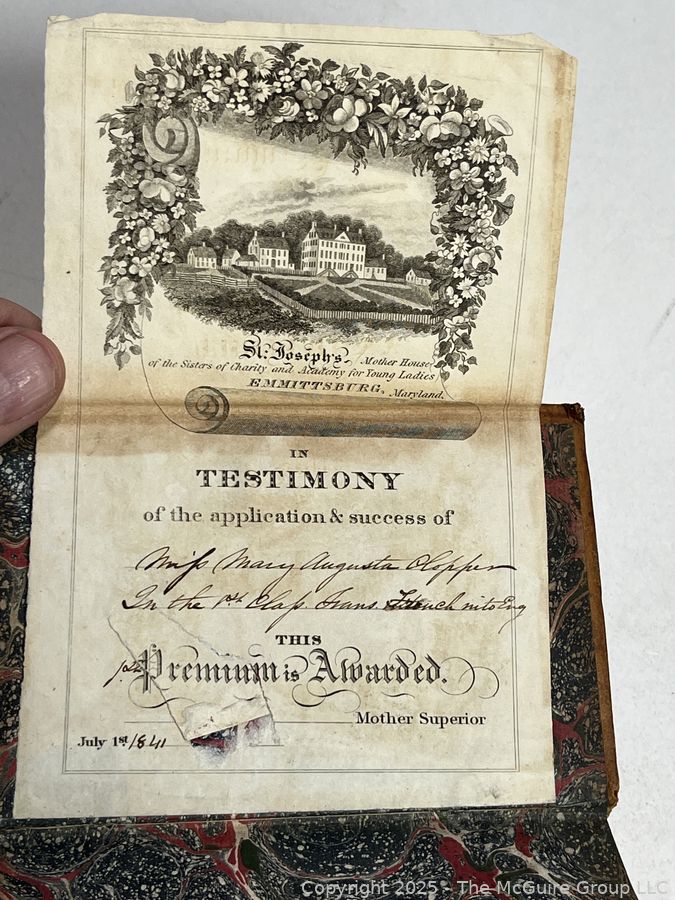 St. Joseph's, Mother House
of the Sisters of Charity and Academy for Young Ladies
EMMITTSBURG, Maryland.
IN
TESTIMONY
of the application & success of
Miss Mary Augusta Clopper
In the 1st Class Trans. French into Eng
THIS
1st Premium is Awarded.
Mother Superior
July 1st 1841
Copyright 2025 - The McGuire Group LLC